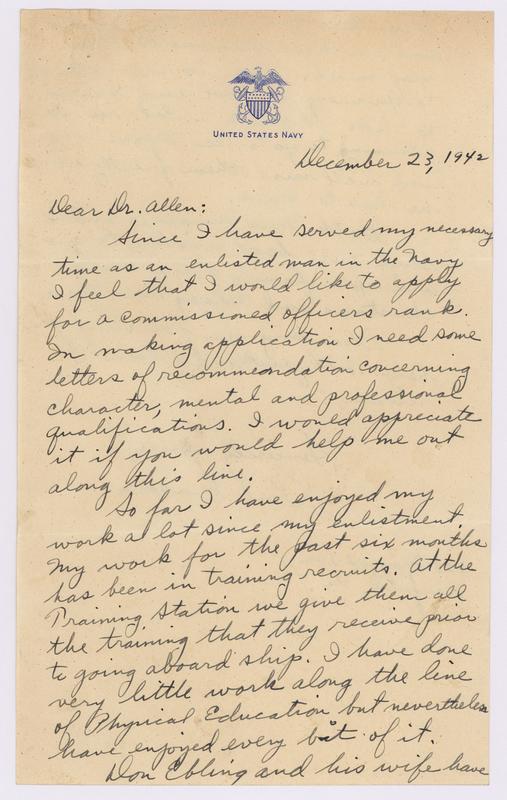 UNITED STATES NAVY
December 23, 1942
Dear Dr. Allen:
Since I have served my necessary
time as an enlisted man in the Navy
I feel that I would like to apply
for a commissioned officers rank.
In making application I need some
letters of recommeondation concerning
character, mental and professional
qualifications. I would appreciate
it if you would help me out
along this line.
So far I have enjoyed my
work a lot since my enlistment.
My work for the past six months
has been in training recruits. At the
Training Station we give them all
the training that they receive prior
to going aboard ship. I have done
very little work along the line
of Physical Education but nevertheless
have enjoyed every bit of it.
Don Ebling and his wife have